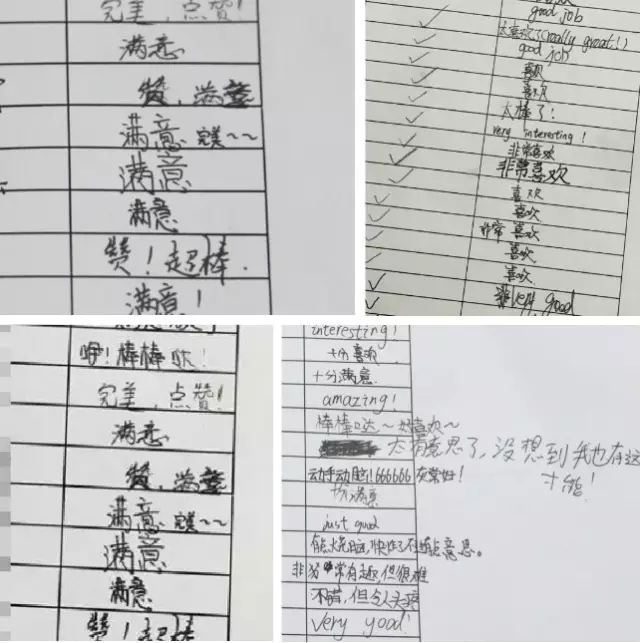 完美，点赞！
满意
赞，满意
满意 完美～～
满意
满意
赞！超棒.
满意！
good job
太喜欢了(really great!)
good job
喜欢
喜欢
太棒了！
very interesting !
非常喜欢
非常喜欢
喜欢
喜欢
非常喜欢
喜欢
喜欢
very good
咿！棒棒哒！
完美，点赞！
满意
赞，满意
满意 完美～～
满意
满意
赞！超棒
interesting!
十分喜欢
十分满意
amazing!
棒棒哒～好喜欢～
太有意思了，没想到我也有这
才能！
动手动脑！666666 非常好！
十分满意
just good
有点烧脑，
非常有趣，但很难
不错，但令人头疼
very good!